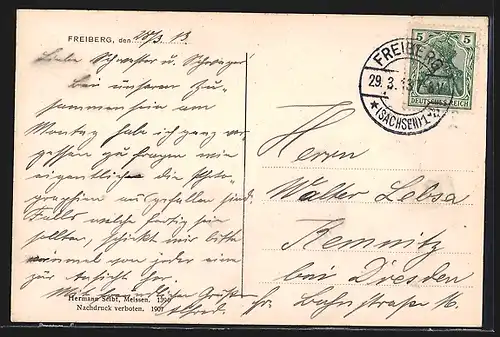 FREIBERG, den 28/3. 13
Liebe Schwester u. Schwager!
Bei unserem Zu-
sammensein am
Montag habe ich ganz ver-
gessen zu fragen wie
eigentlich die Photo-
graphien ausgefallen sind.
Falls welche fertig sein
sollten, schickt mir bitte
einmal von jeder eine
zur Ansicht her.
Mit herzlichen Grüßen
Alfred.
Hermann Seibt, Meissen.
Nachdruck verboten. 1907
5 5
DEUTSCHES REICH
FREIBERG
29.3.13
(SACHSEN)
Herrn
Walter Lebsa
Kemnitz
bei Dresden
Bahnstraße 16.